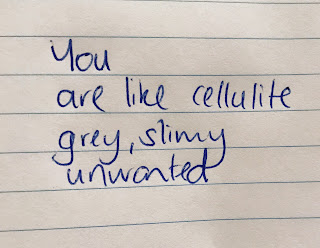 You
are like cellulite
grey, slimy
unwanted